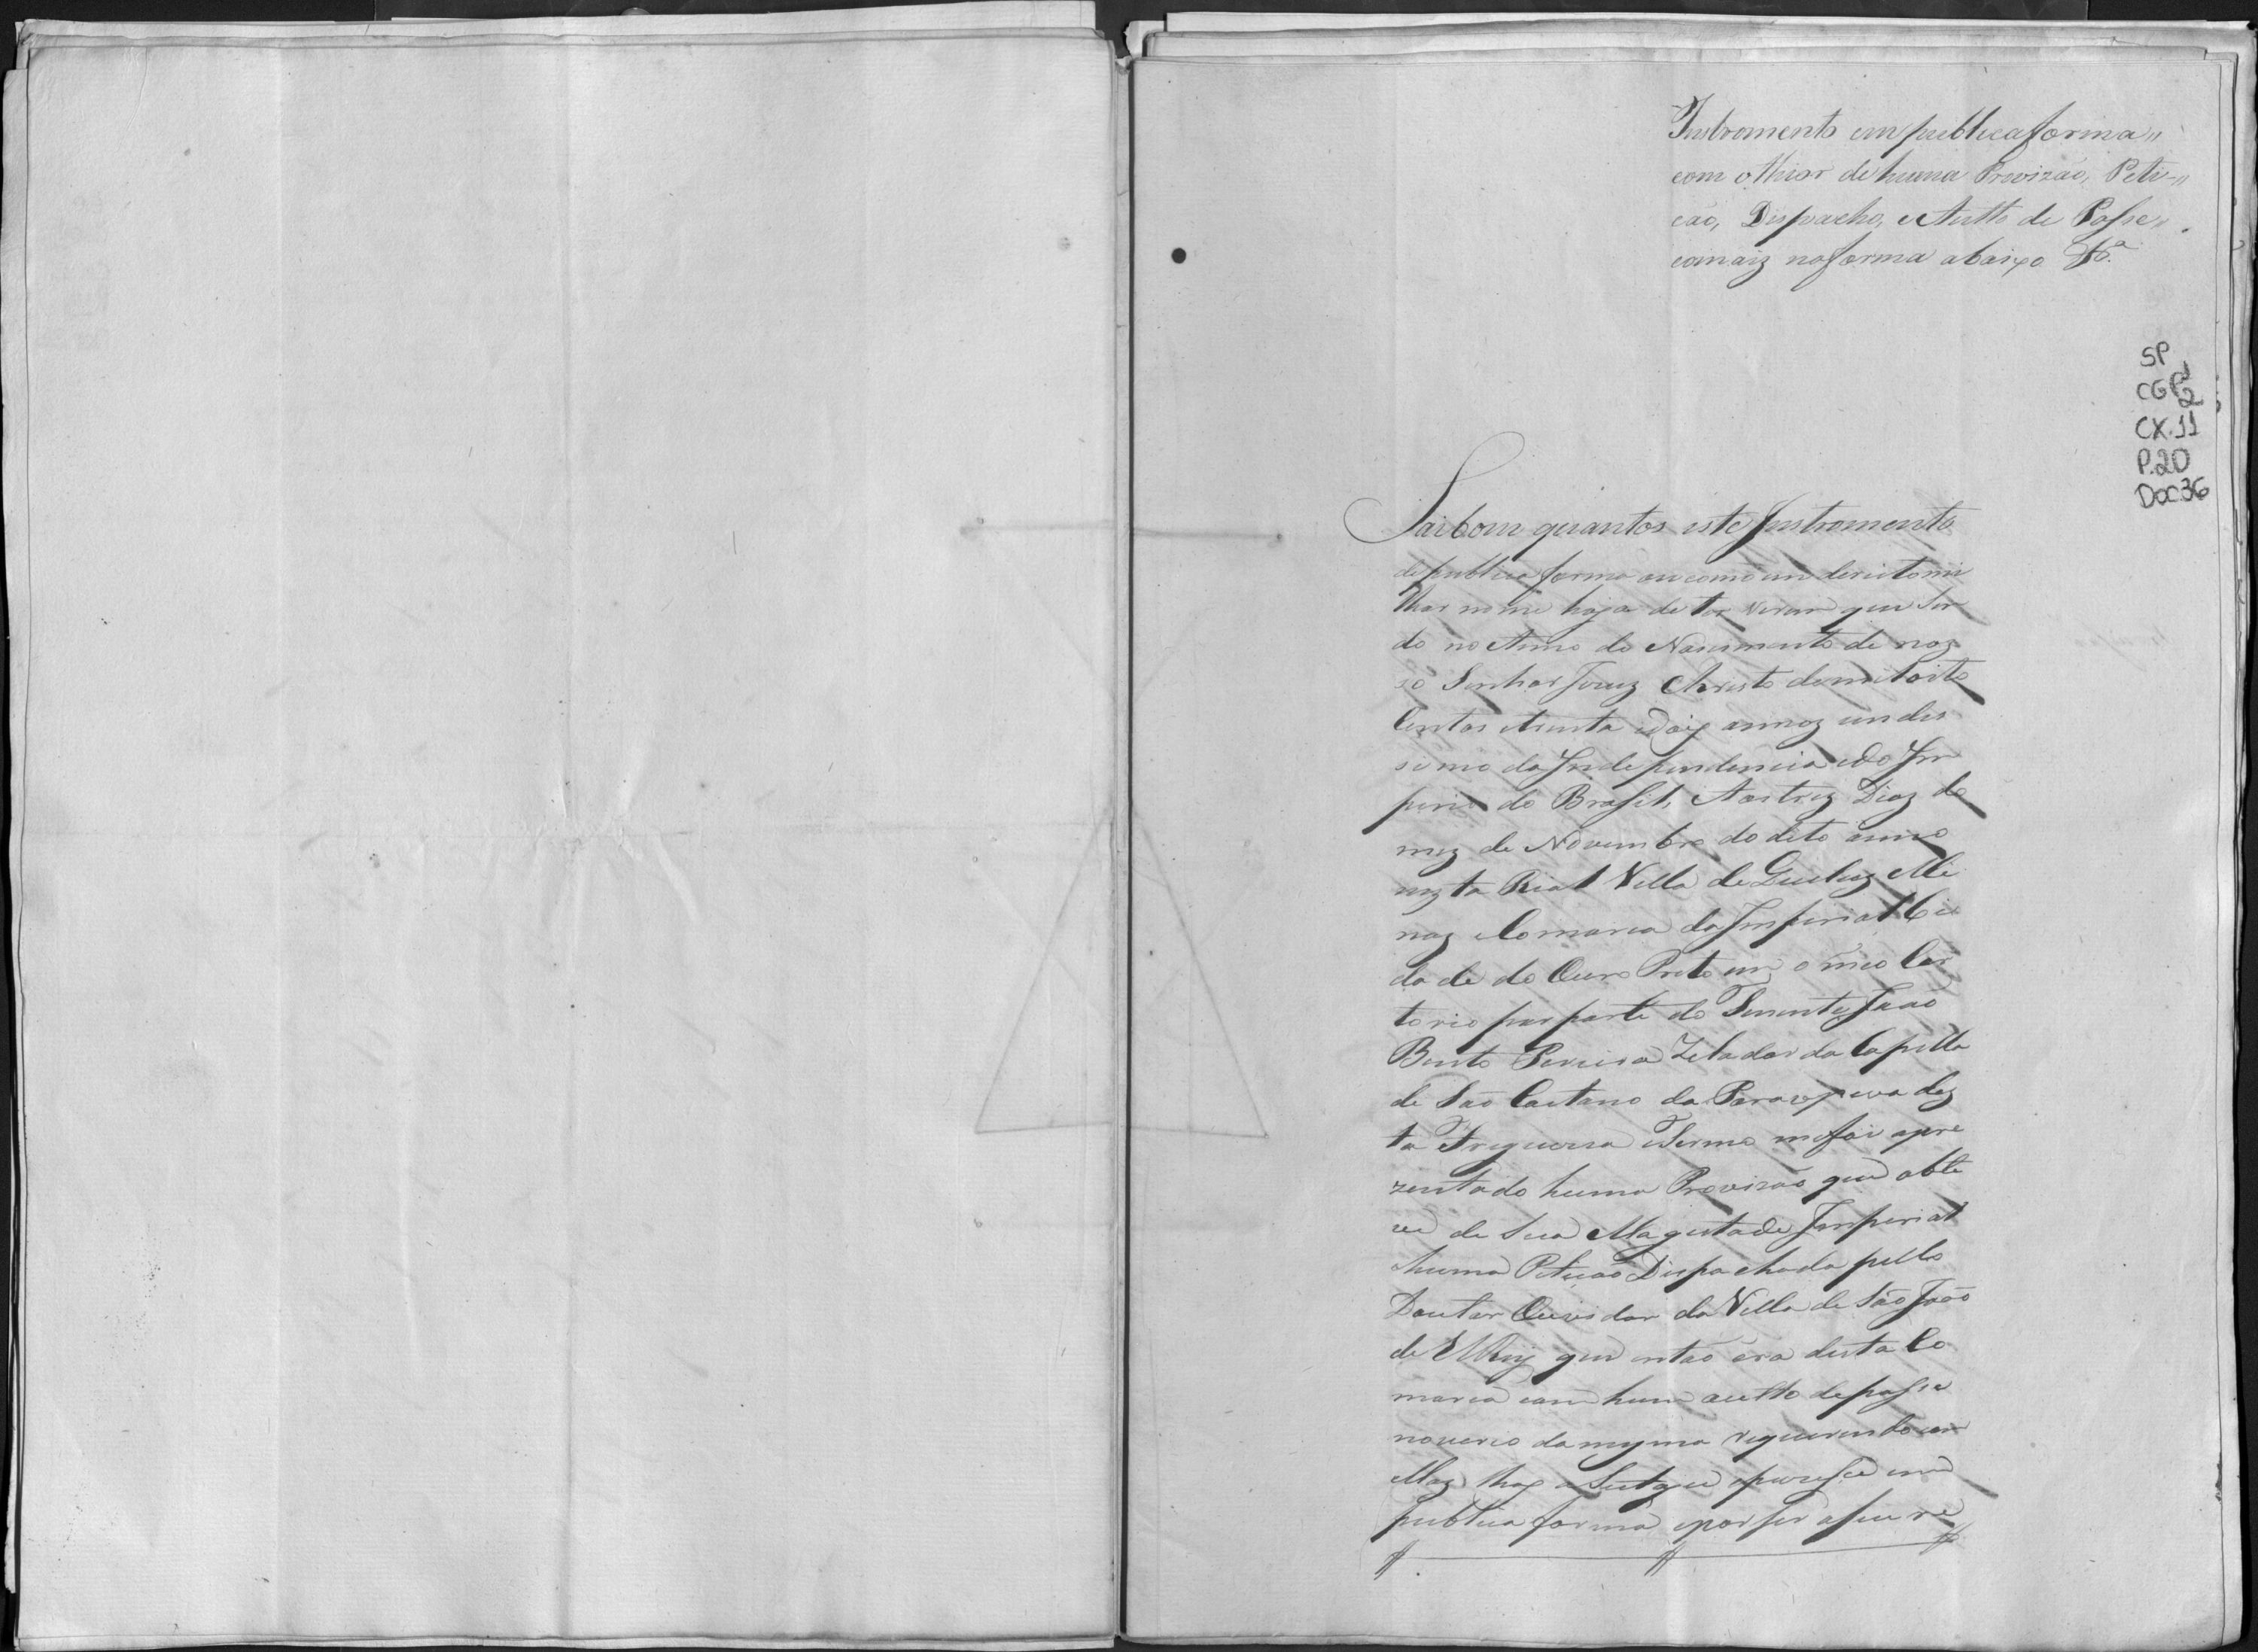 Instromento em publica forma"
com o thior de huma Provizão, Peti-"
cão, Dispacho, e Autto de Posse".
comaiz na forma abaixo &ª.
SP
CGP2
CX.11
P.20
DOC36
Saibom quantos este Instromento
de publica forma ou como em dereito mi
lhor nome haja de ter virem que sen
do no Anno do Nascimento de noz
so Senhor Jezuz Christo de mil oito
Centos etrinta edoiz annoz undes
simo da Independencia edo Im
perio do Brasil, Aos trez Diaz do
mez de Novembro do dito anno
nezta Rial Villa de Queluz Mi
naz Comarca da Imperial Ci
da de do Ouro Preto em o meo Car
torio por parte do Tenente João
Bento Pereira Zelador da Capella
de São Caetano da Paraopeva dez
ta Freguezia eTermo me foi apre
zentado huma Provizão que obte
ve de Sua Magestade Imperial
huma Peticão Dispachada pello
Doutor Ouvidor da Villa de São João
de ElRey que então era desta Co
marca com hum autto de posse
no verco da mezma requerendo
Maz
publica forma e por ser a seu re